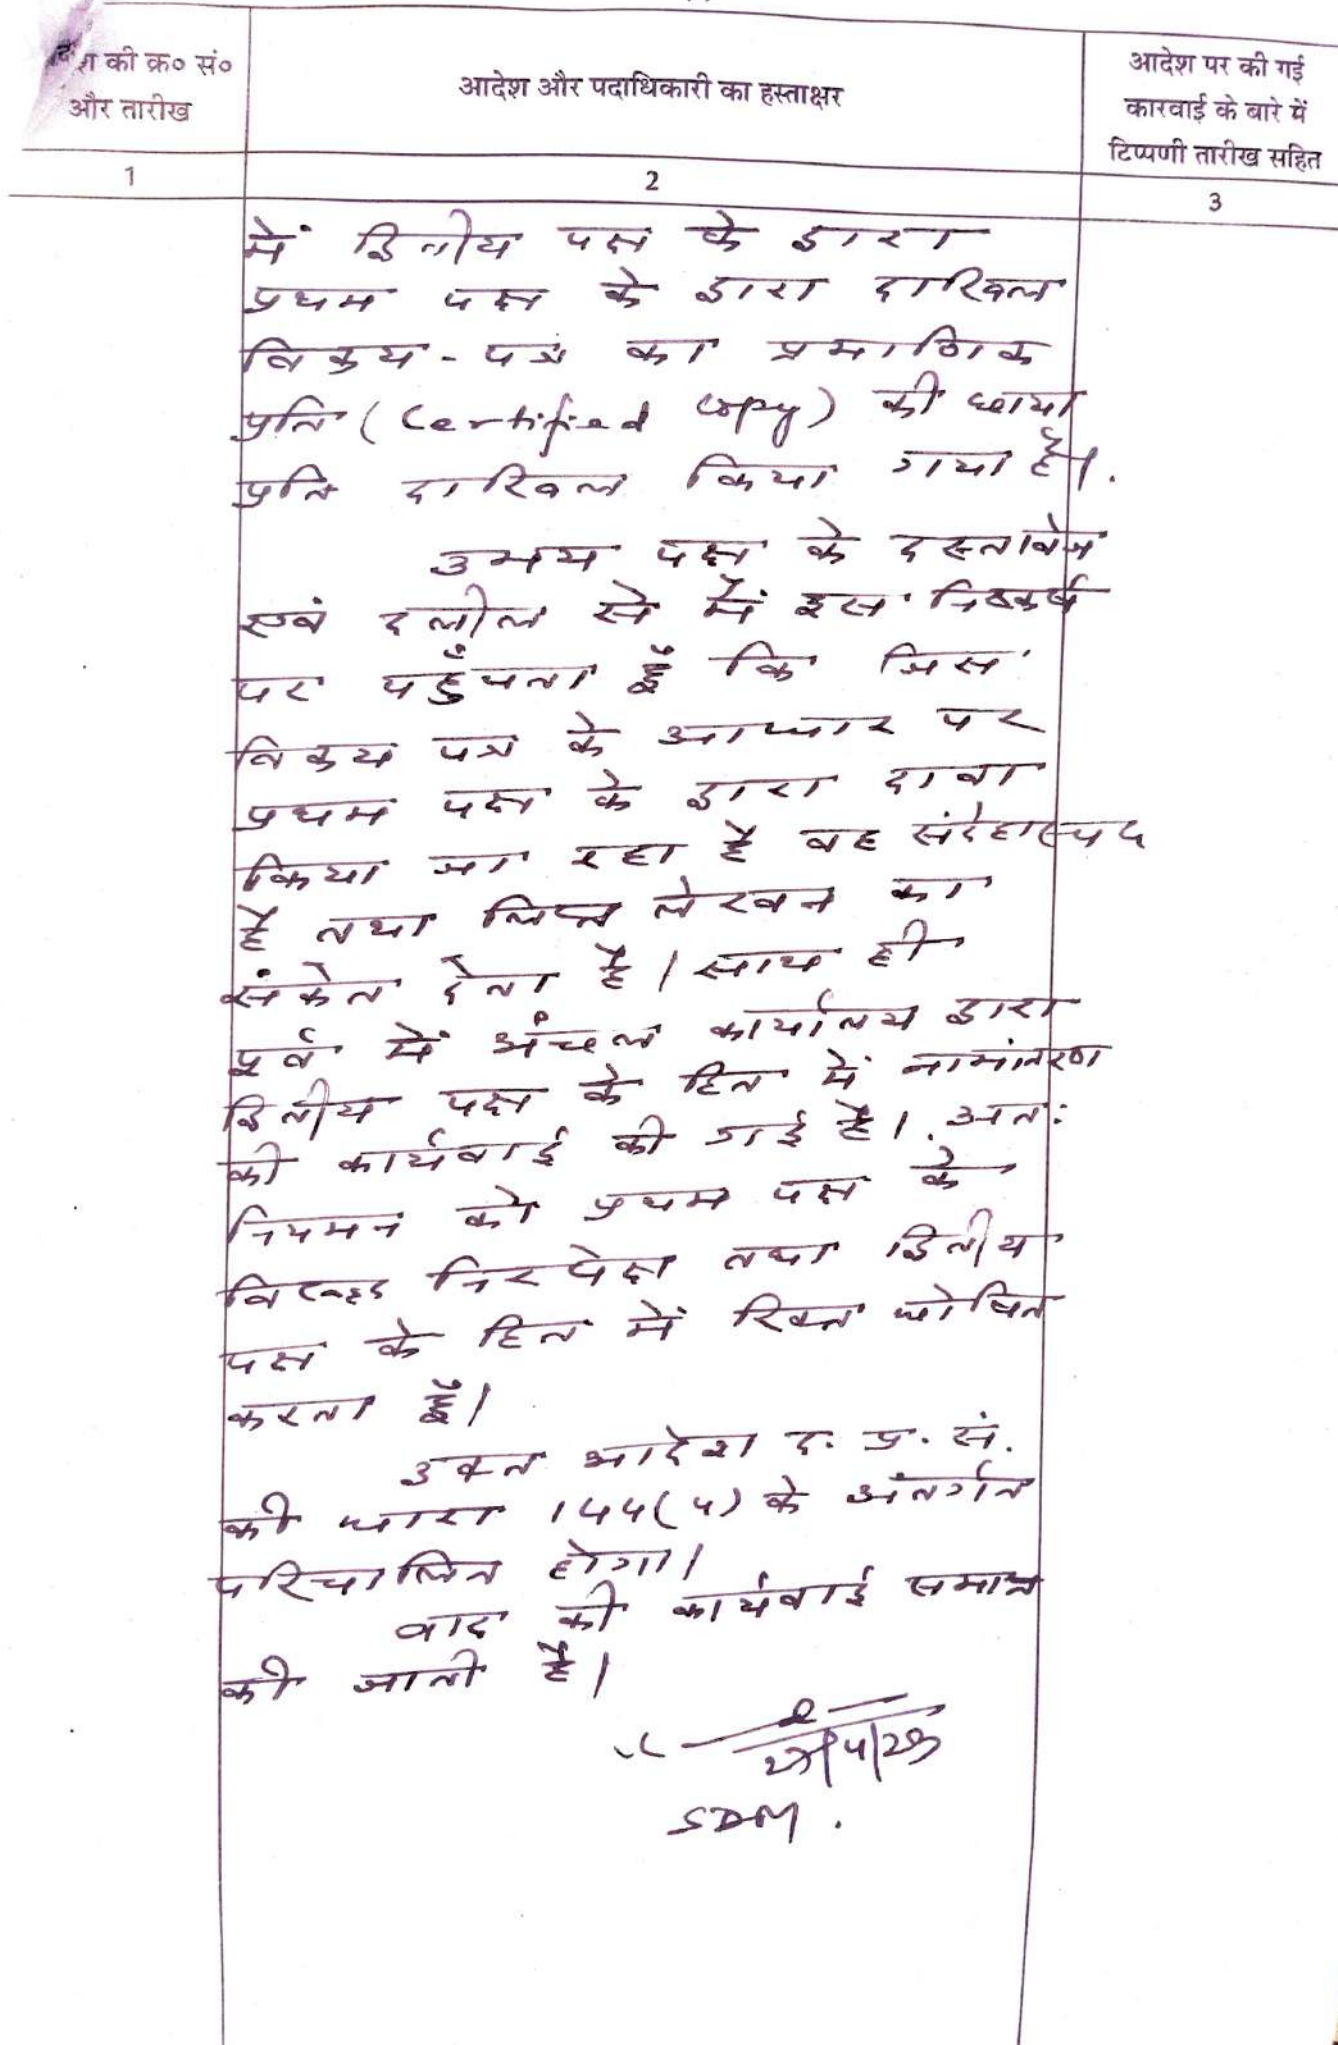 आदेश की क्र० सं०
और तारीख
आदेश और पदाधिकारी का हस्ताक्षर
आदेश पर की गई
कारवाई के बारे में
टिप्पणी तारीख सहित
1
2
3
में द्वितीय पक्ष के द्वारा
प्रथम पक्ष के द्वारा दाखिल
विक्रय - पत्र का प्रमाणिक
प्रति (Certified copy) की छाया
प्रति दाखिल किया गया है।
उभय पक्ष के दस्तावेज
एवं दलील से मैं इस निष्कर्ष
पर पहुँचता हूँ कि जिस
विक्रय पत्र के आधार पर
प्रथम पक्ष के द्वारा दावा
किया जा रहा है वह संदेहास्पद
है तथा लेखन का
संकेत देता है। साथ ही
पूर्व में अंचल कार्यालय द्वारा
द्वितीय पक्ष के हित में नामांतरण
की कार्यवाई की गई है। अतः
नियमन को प्रथम पक्ष के
विरूद्ध निरपेक्ष तथा द्वितीय
पक्ष के हित में रिक्त घोषित
करता हूँ।
उक्त आदेश द. प्र. सं.
की धारा 144(4) के अंतर्गत
परिचालित होगा।
वाद की कार्यवाई समाप्त
की जाती है।
SDM.